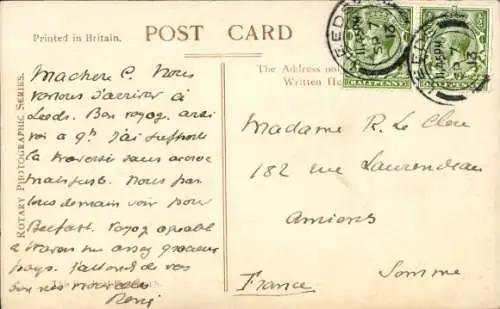 Printed in Britain.
POST CARD
The Address only
Written He
ROTARY PHOTOGRAPHIC SERIES.
LEEDS
11.45PM
SP 7
13
HALFPENNY
LEEDS
11.45PM
SP 7
13
Ma chère C. Nous
venons d'arriver à
Leeds. Bon voyage.
à 9h. J'ai supporté
la traversée sans
Nous
demain soir pour
Belfast. Voyage agréable
à travers un assez gracieux
pays. J'attends de vos
bonnes nouvelles
René
Madame R. Le Clerc
182 rue Laurendeau
Amiens
Somme
France